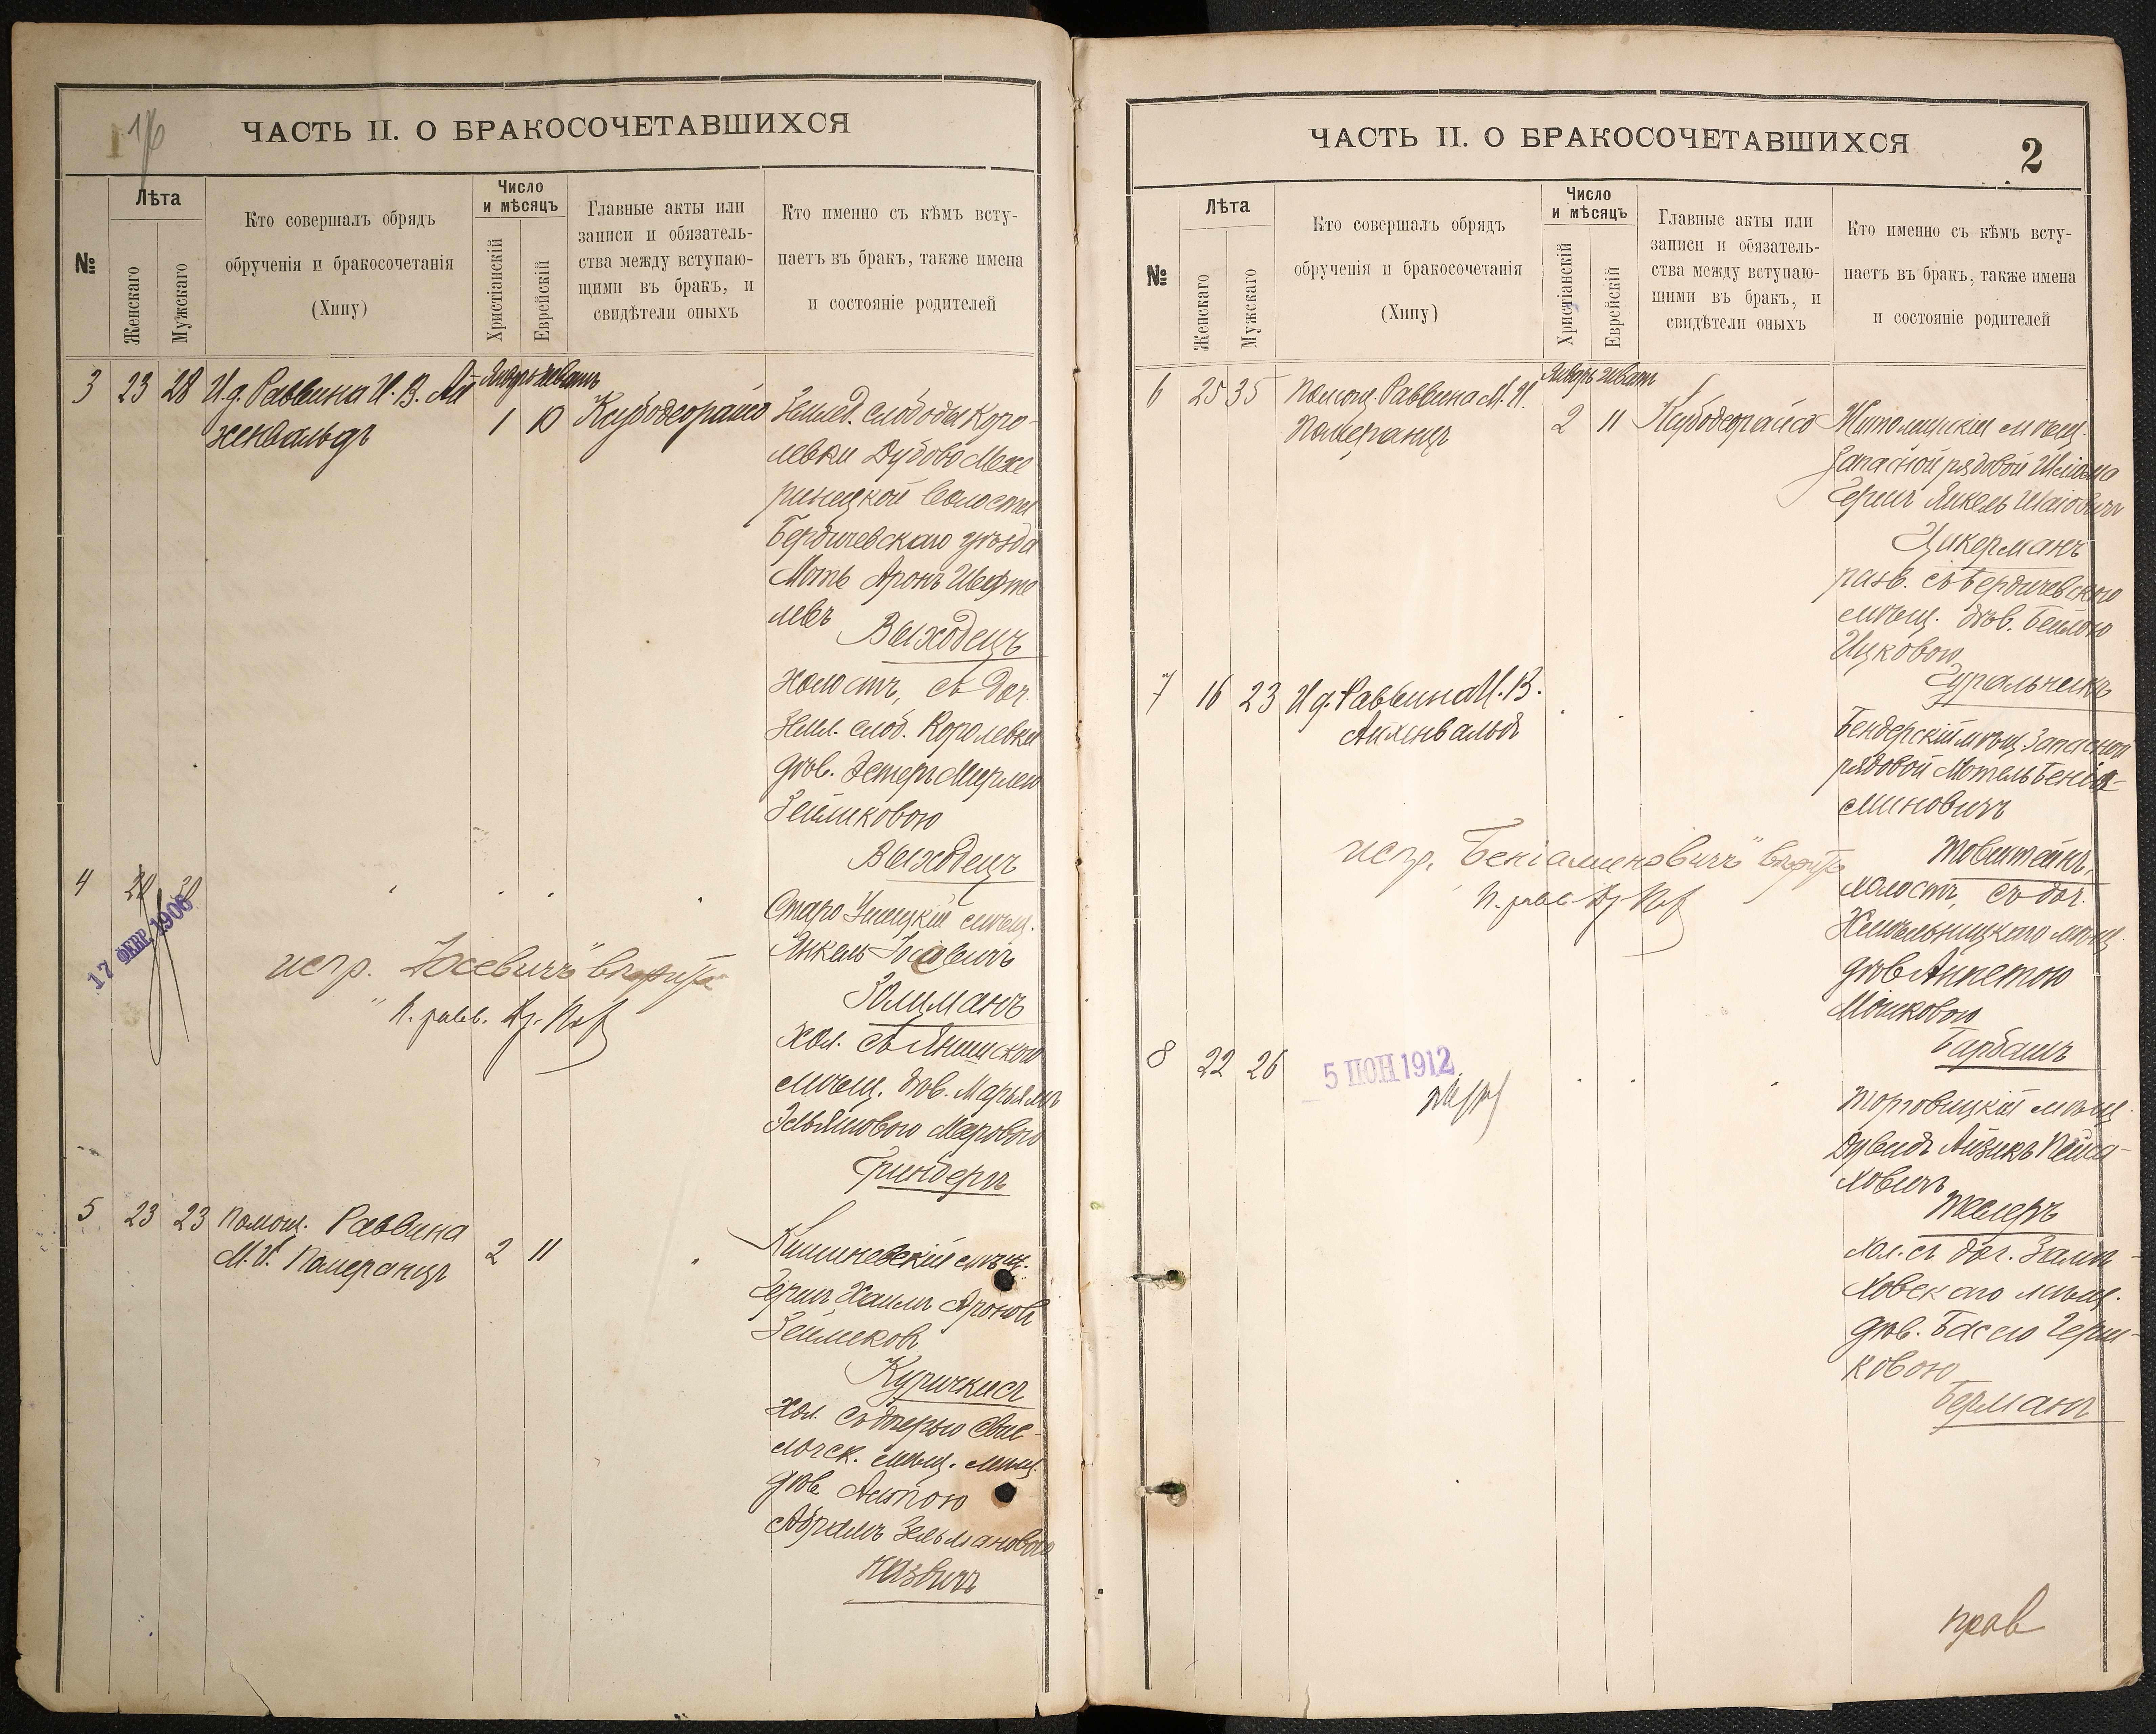 16
ЧАСТЬ II. О БРАКОСОЧЕТАВШИХСЯ
№
Лѣта
Женскаго
Мужскаго
Кто совершалъ обрядъ
обрученія и бракосочетанія
(Хипу)
Число
и мѣсяцъ
Христіанскій
Еврейскій
Главные акты или
записи и обязатель-
ства между вступаю-
щими въ бракъ, и
свидѣтели оныхъ
Кто именно съ кѣмъ всту-
паетъ въ бракъ, также имена
и состояніе родителей
3 23 28 И д. Раввина И. В. Ай
хенвальдъ
Январь Шватъ
1 10
Землед. слободы Коро-
левки Дубово Меже
ринецкой волости
Бердичевскаго уѣзда
Мотъ Аронъ Шефте
левъ
Выходецъ
холостъ, съ доч.
Земл. слоб. Королевки
дѣв.
Зейликовою
Выходецъ
4
17 ФЕВР 1906
испр. "Іосевичъ" вѣрить
П. равв.
Старо Ушицкій мѣщ.
Янкель Іосевичъ
Колиманъ
Хол. съ
мѣщ. дѣв. Марьямъ
Гринбергъ
5 23 23 Помощ. Раввина
М. И. Померанцъ
2 11
Кишиневскій мѣщ.
Герш Хаимъ Ароновъ
Зейликовъ
Хол. съ дочерью Свис-
лочск. мѣщ. мѣщ.
дѣв.
Абрамъ Зельмановою
ЧАСТЬ II. О БРАКОСОЧЕТАВШИХСЯ
2
№
Лѣта
Женскаго
Мужскаго
Кто совершалъ обрядъ
обрученія и бракосочетанія
(Хипу)
Число
и мѣсяцъ
Христіанскій
Еврейскій
Главные акты или
записи и обязатель-
ства между вступаю-
щими въ бракъ, и
свидѣтели оныхъ
Кто именно съ кѣмъ всту-
паетъ въ бракъ, также имена
и состояніе родителей
6 25 35 Помощ. Раввина М. И.
Померанцъ
Январь Шватъ
2 11
Житомирскій мѣщ.
Запасной рядовой Шліома
Герш Янкель Шаіовичъ
Цикерманъ
разв. съ Бердичевскою
мѣщ. дѣв. Бейлою
Ицковою
Гуральникъ
7 16 23 И д. Раввина И. В.
Айхенвальдъ
Бендерскій мѣщ. Запасной
рядовой Мотель Беніа-
миновичъ
Товштейнъ,
холостъ, съ доч.
Хмельницкаго мѣщ.
дѣв. Аннетою
Мошковою
Барбашъ
испр. "Беніаминовичъ" вѣрить
П. равв.
8 22 26
5 ІЮН 1912
Торговицкій мѣщ.
Дувидъ Айзикъ Пейса-
ховичъ
Теслеръ
Хол. съ доч.
мѣщ.
дѣв. Басею Герш-
ковою
Берманъ